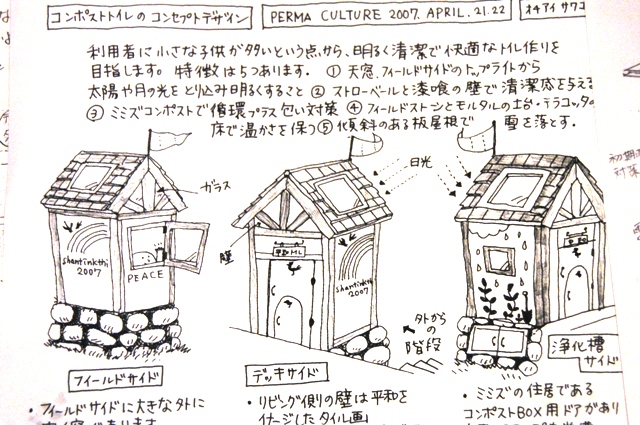 コンポストトイレのコンセプトデザイン
PERMA CULTURE 2007. APRIL. 21.22
オキアイ サワコ
利用者に小さな子供が多いという点から、明るく清潔で快適なトイレ作りを
目指します。特徴は5つあります。① 天窓、フィールドサイドのトップライトから
太陽や月の光をとりこみ明るくすること ② ストローベールと漆喰の壁で清潔感を与える
③ ミミズコンポストで循環プラス匂い対策 ④ フィールドストーンとモルタルの土台・テラコッタの
床で温かさを保つ ⑤ 傾斜のある板屋根で 雪を落とす。
ガラス
日光
壁
shantinkthi
2007
PEACE
shantinkthi
2007
外から
の
階段
浄化槽
サイド
フィールドサイド
デッキサイド
・フィールドサイドに大きな外に
・リビング側の壁は平和を
イメージしたタイル画
・ミミズの住居である
コンポストBOX用ドアがあり
初期
対策